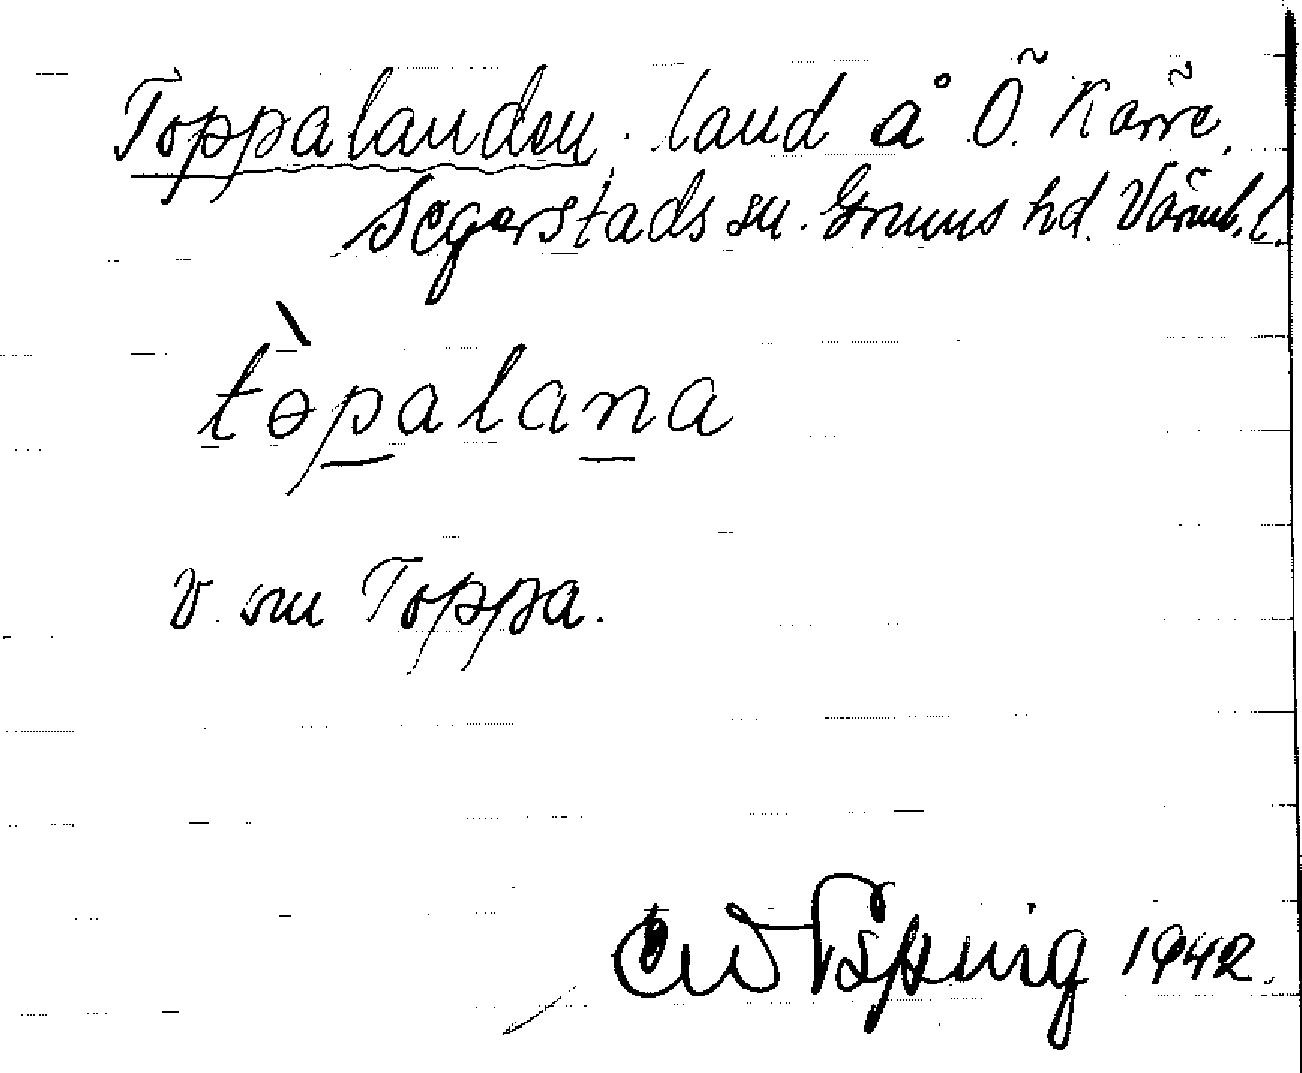 Toppalanden, land å Ö. Kärre,
Segerstads sn. Grums hd. Värml. l.
tòpalana
V. om Toppa.
1942.